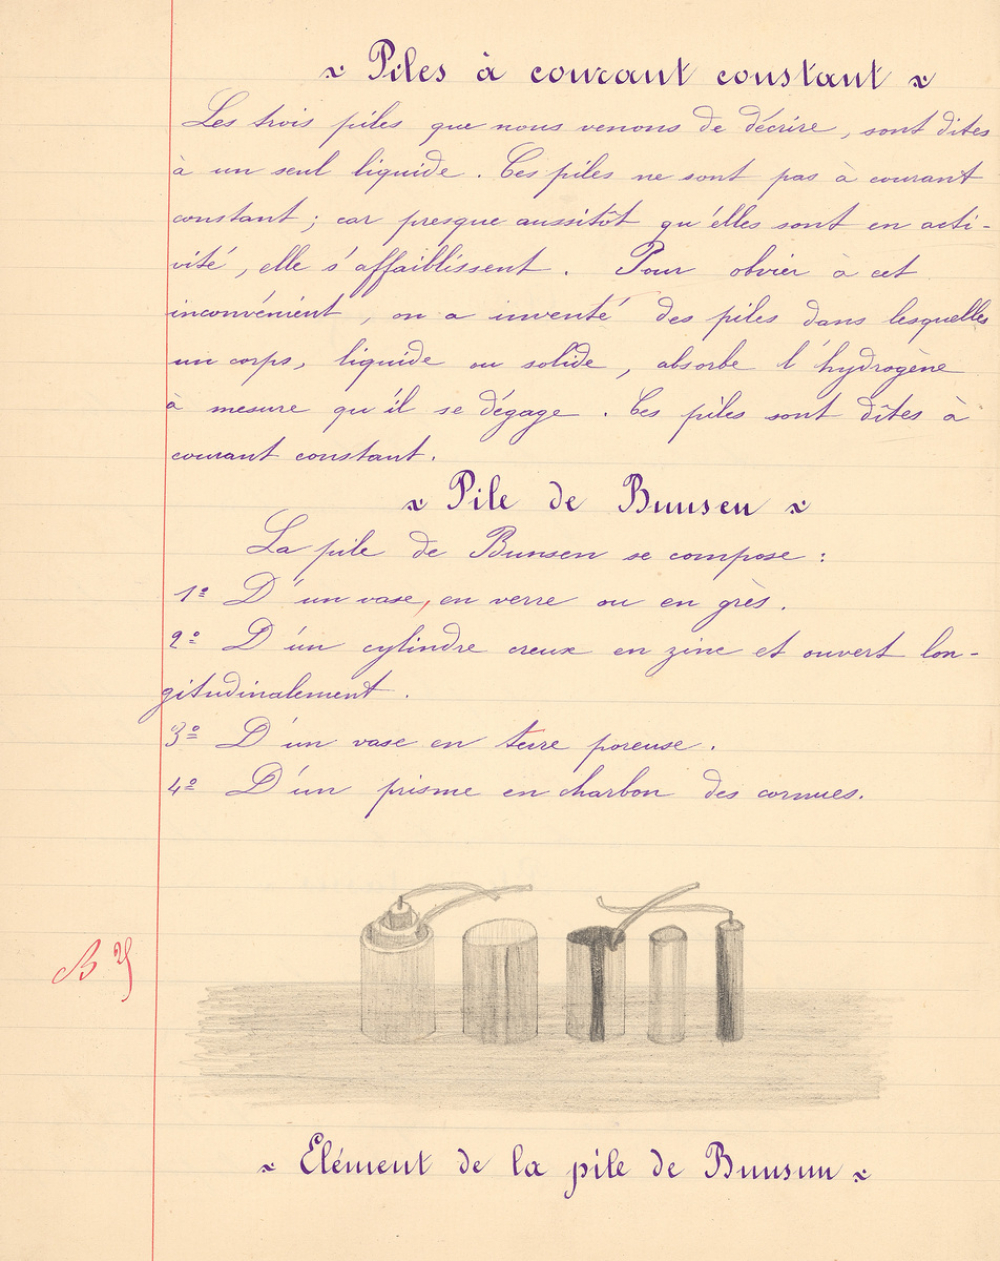 x Piles à courant constant x
Les trois piles que nous venons de décrire, sont dites
à un seul liquide. Ces piles ne sont pas à courant
constant; car presque aussitôt qu'elles sont en acti-
vité, elle s'affaiblissent. Pour obvier à cet
inconvénient, on a inventé des piles dans lesquelles
un corps, liquide ou solide, absorbe l'hydrogène
à mesure qu'il se dégage. Ces piles sont dîtes à
courant constant.
x Pile de Bunsen x
La pile de Bunsen se compose :
1º D'un vase, en verre ou en grès.
2º D'un cylindre creux en zinc et ouvert lon-
gitudinalement.
3º D'un vase en terre poreuse.
4º D'un prisme en charbon des cornues.
x Elément de la pile de Bunsun x